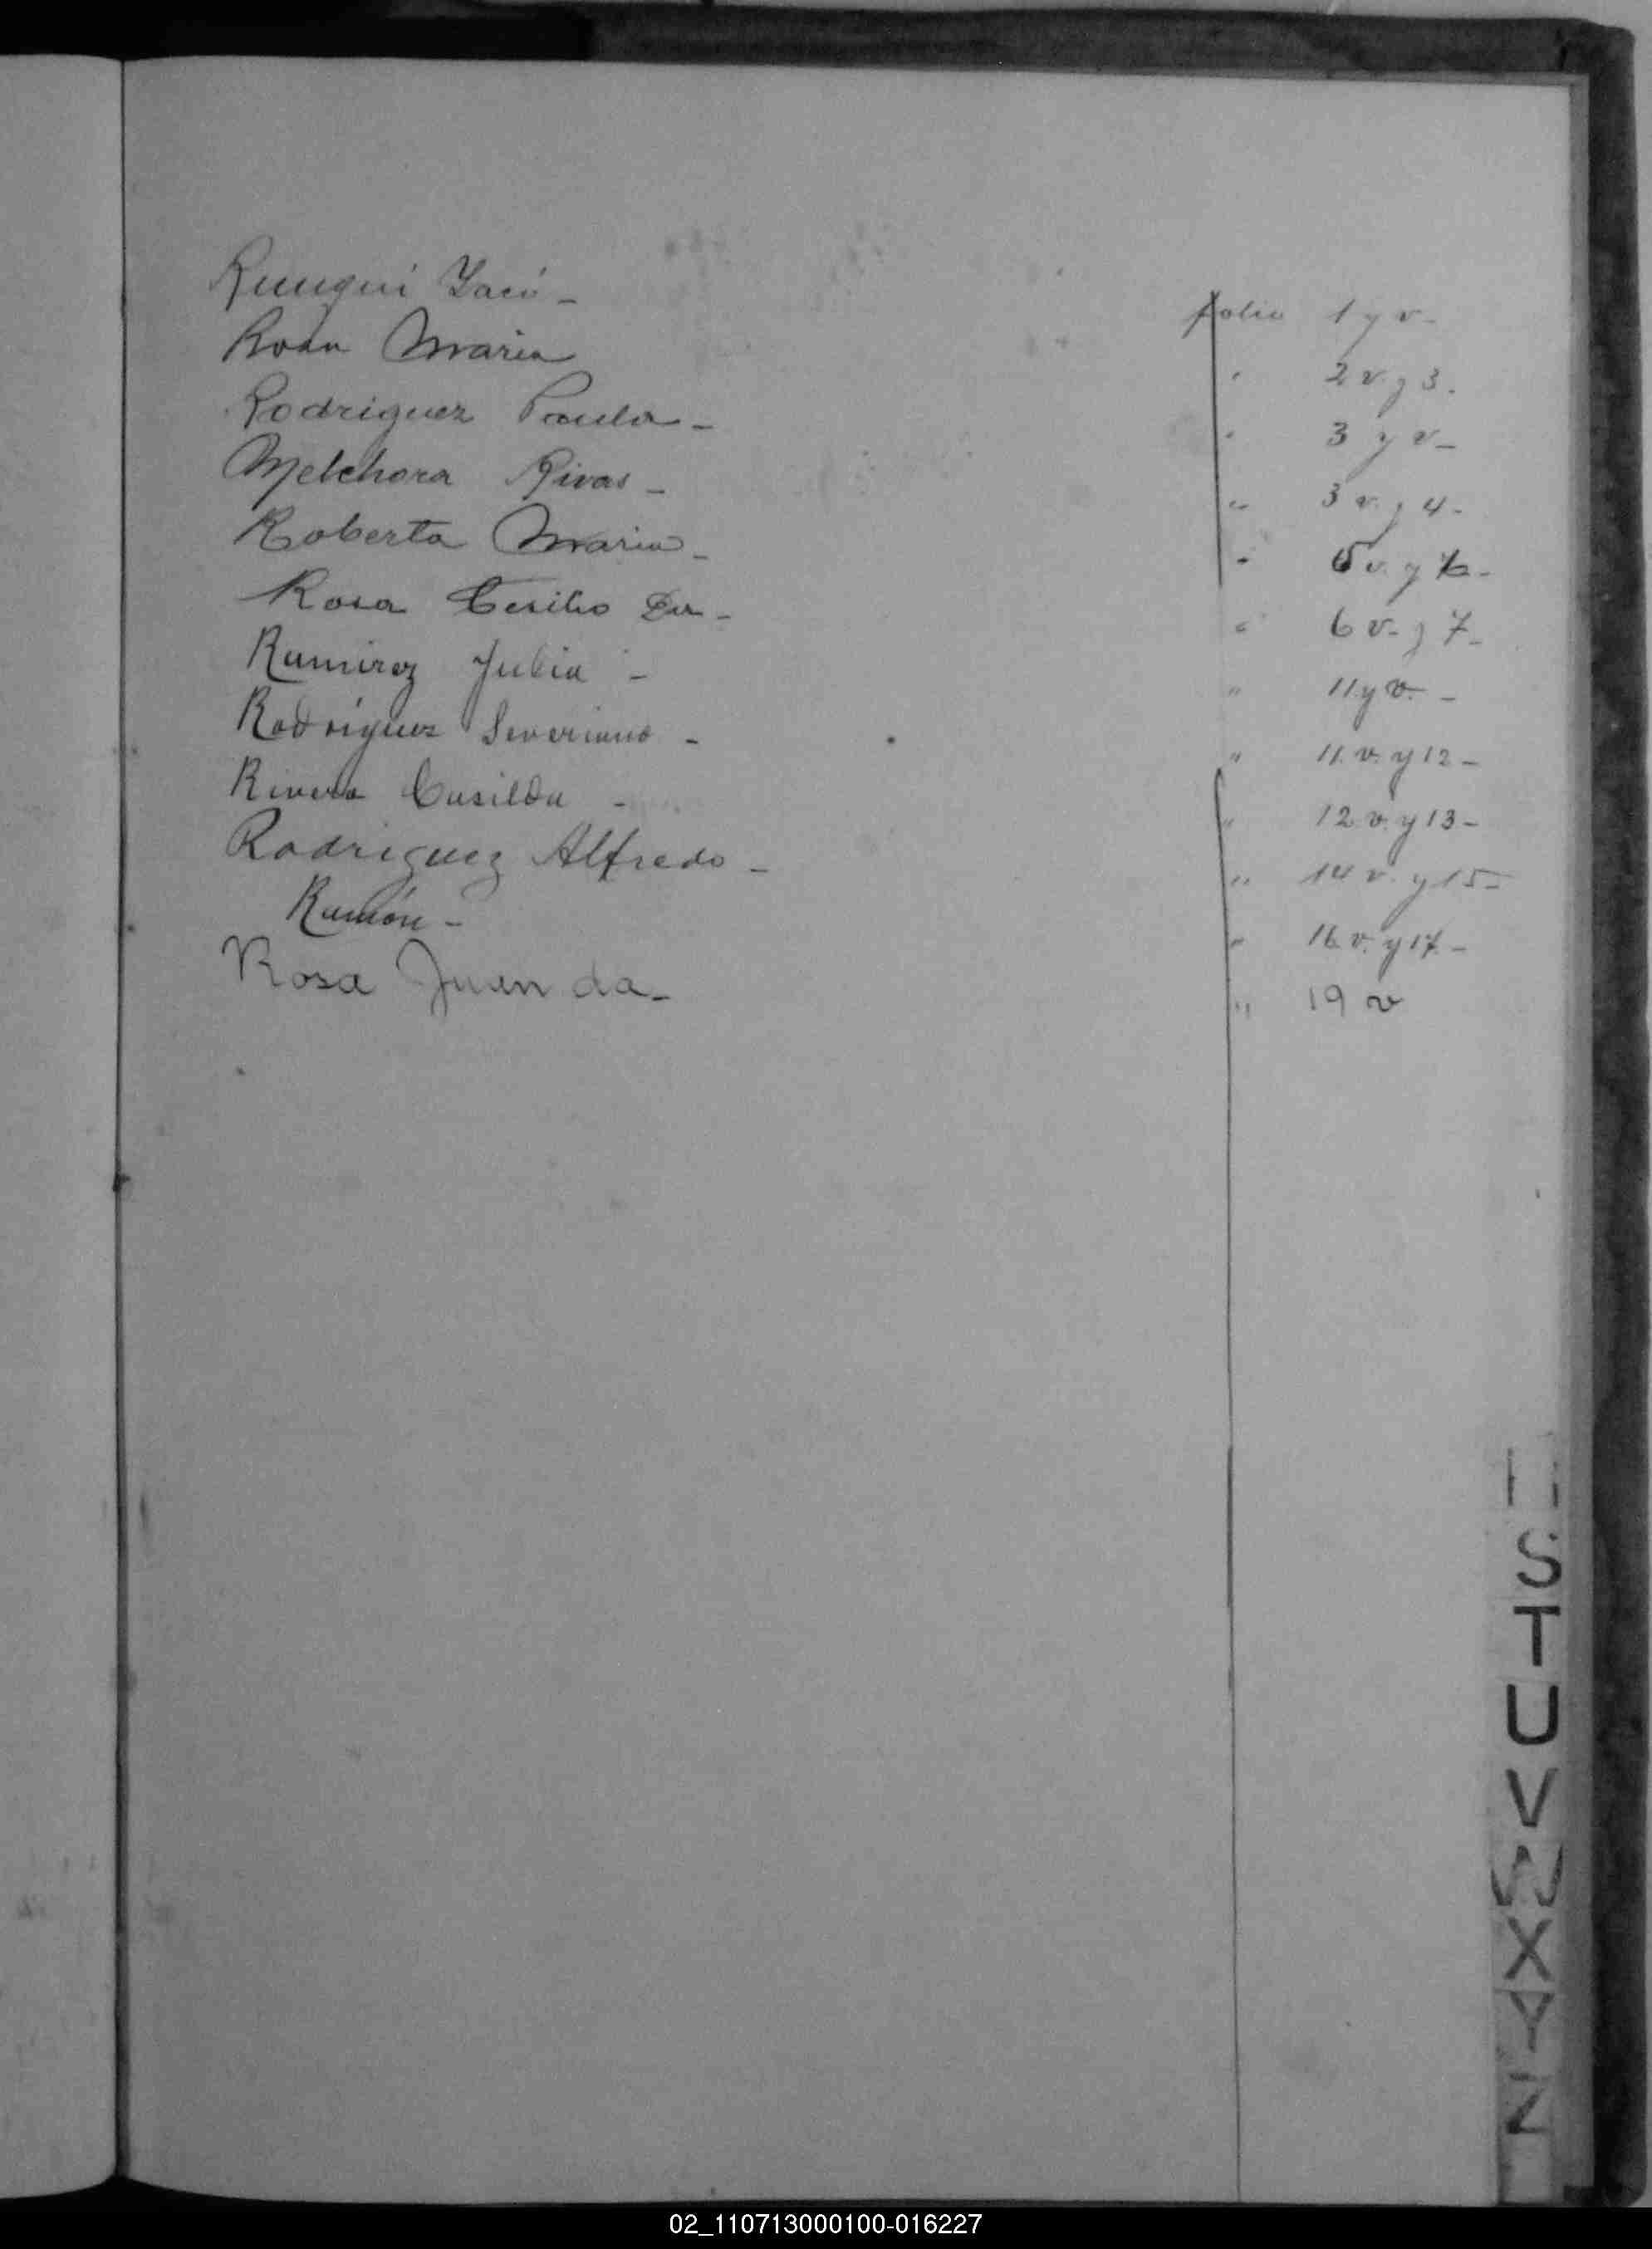 Runqui Yacú - folio 1 y v-
Roán Maria " 2 v. y 3.
Rodriguez Paula - " 3 y v-
Melchora Rivas - " 3 v. y 4-
Roberta Maria - " v. y
Rosa Cecilio Da - " 6 v- y 7-
Ramirez Julia - " 11 y v. -
Rodríguez Severiano - " 11. v. y 12-
Rivera Casilda - " 12 v. y 13-
Rodriguez Alfredo - " 14 v. y 15-
Ramón - " 16 v. y 17-
Rosa Juan da- " 19 v
S
T
U
V
W
X
Y
Z
02_110713000100-016227